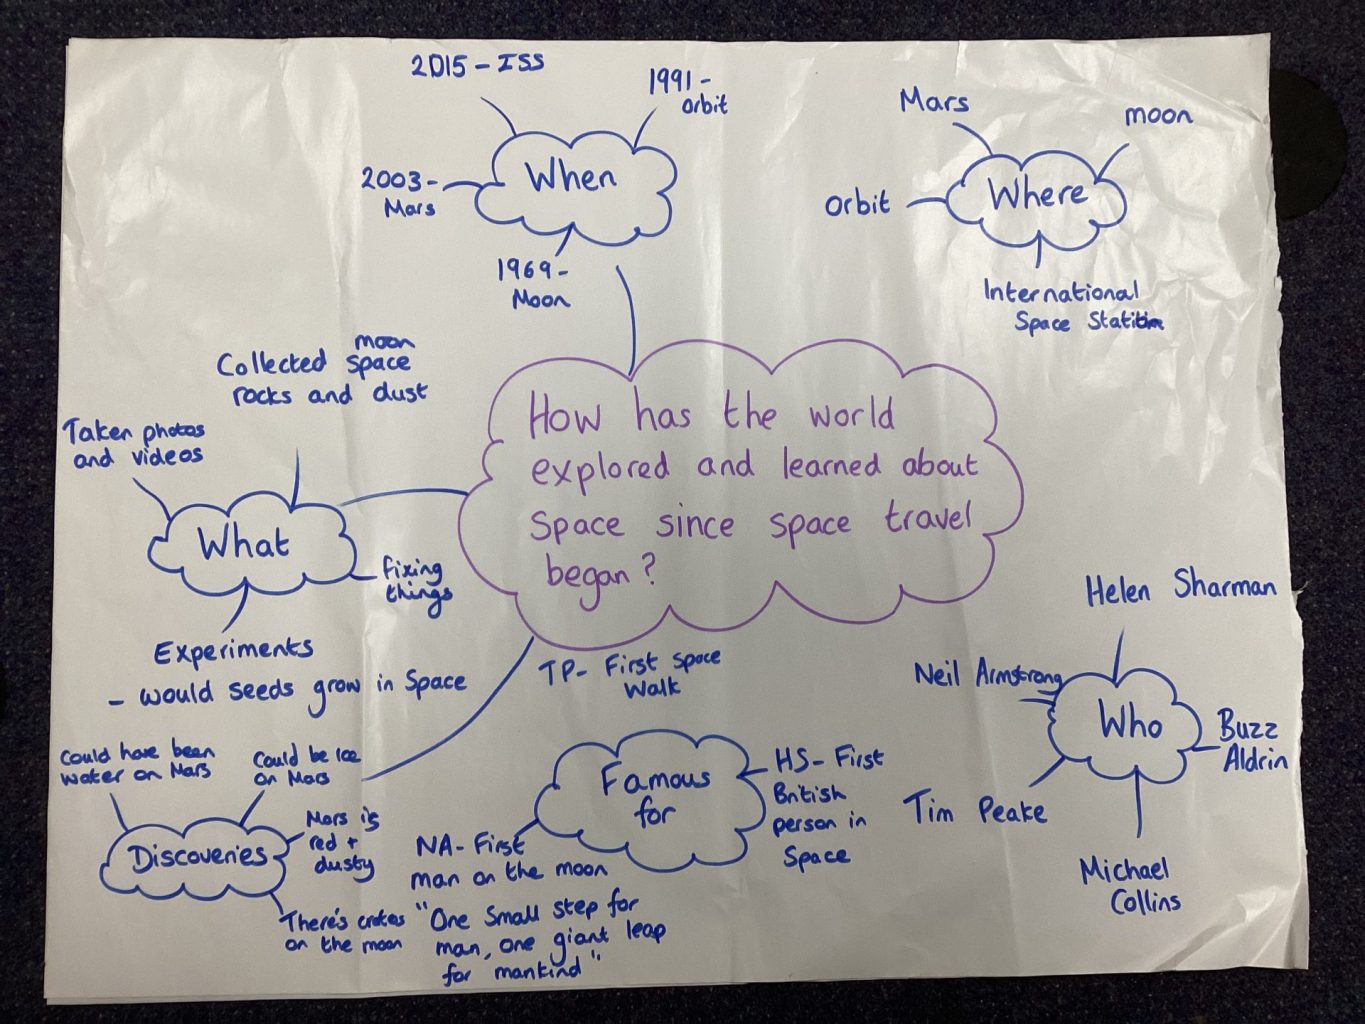 2015 - ISS
1991 -
orbit
When
2003 -
Mars
1969 -
Moon
Mars
moon
Where
orbit
International
Space Station
How has the world
explored and learned about
space since space travel
began?
moon
Collected space
rocks and dust
Taken photos
and videos
What
fixing
things
Experiments
- would seeds grow in space
Could have been
water on Mars
Could be ice
on Mars
Discoveries
Mars is
red +
dusty
There's crates
on the moon
TP - First space
walk
Famous
for
HS - First
British
person in
Space
NA - First
man on the moon
"One small step for
man, one giant leap
for mankind"
Helen Sharman
Neil Armstrong
Who
Buzz
Aldrin
Tim Peake
Michael
Collins